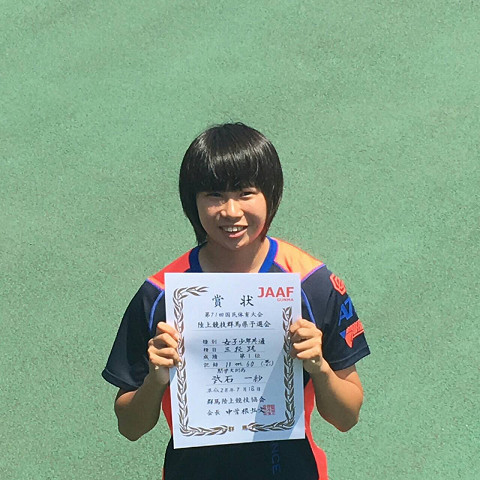 賞状
JAAF
GUNMA
第71回国民体育大会
陸上競技群馬県予選会
種別 女子少年共通
種目 三段跳
成績 第1位
記録
関学大附高
武石 一紗
平成28年7月16日
群馬陸上競技協会
会長 中曽根弘文
群馬